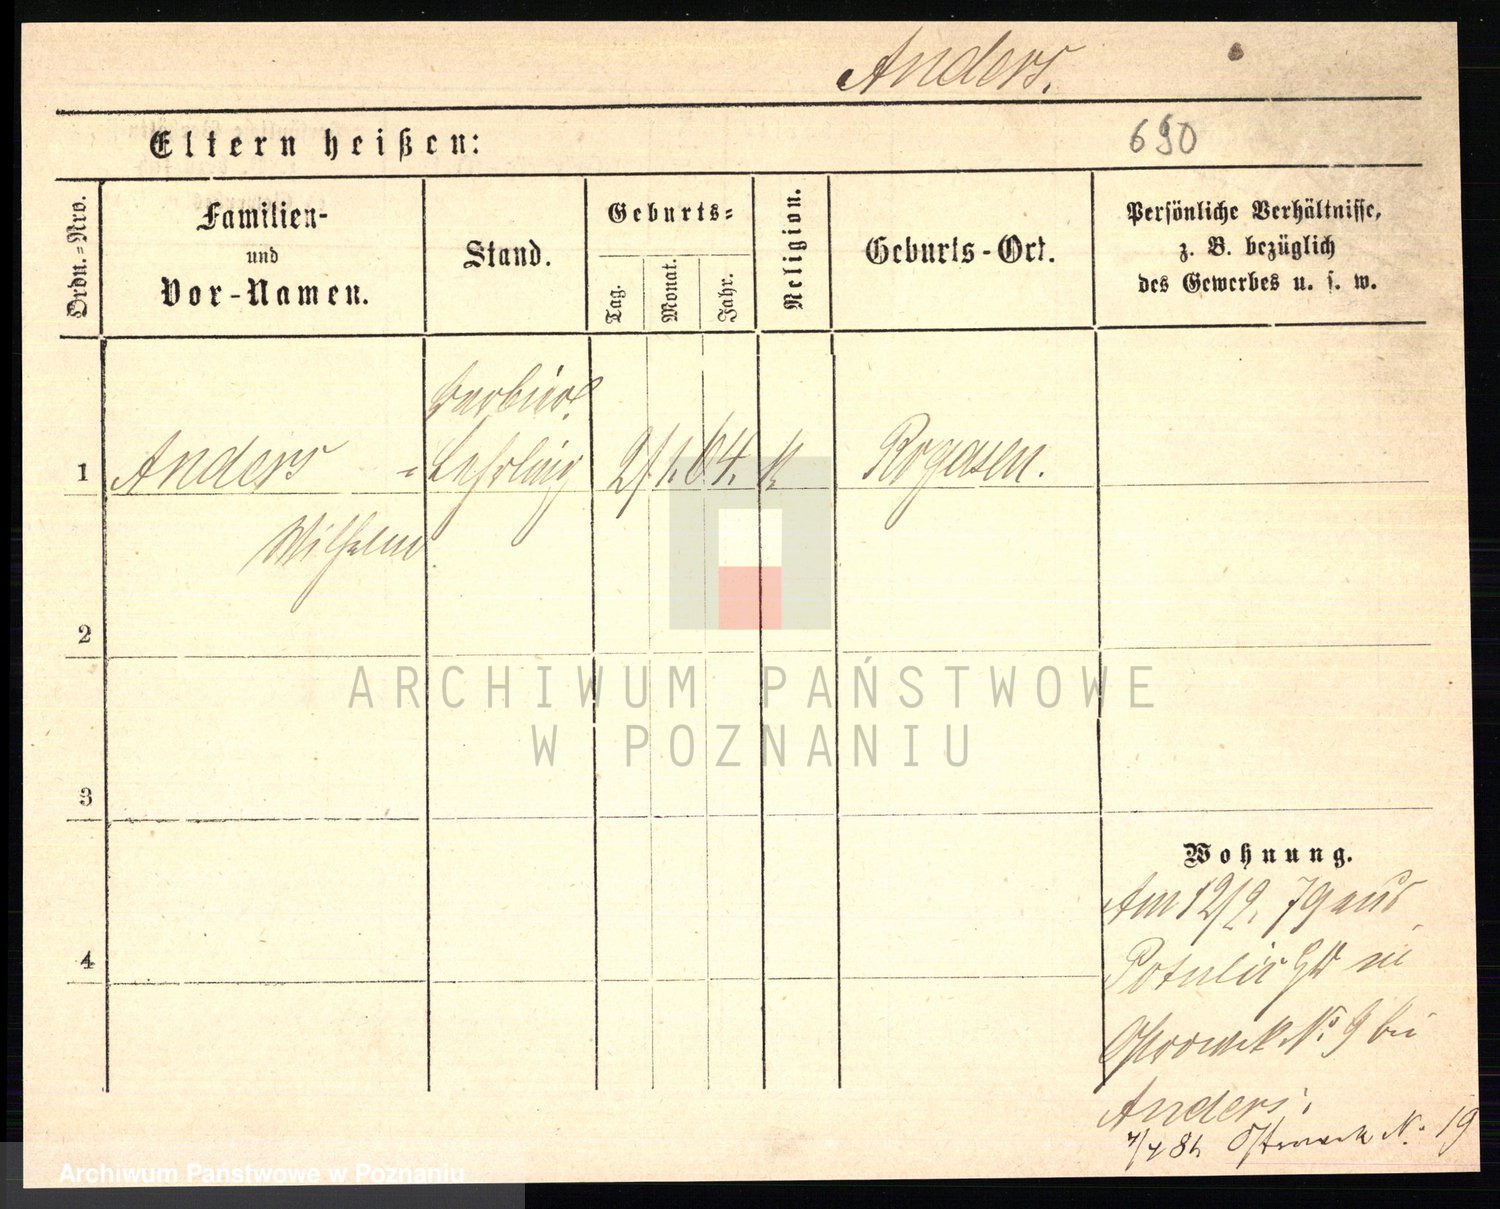 Anders.
Eltern heißen:
690
Ordn.=Nro.
Familien-
und
Vor-Namen.
Stand.
Geburts=
Tag.
Monat.
Jahr.
Religion.
Geburts-Ort.
Persönliche Verhältnisse,
z. B. bezüglich
des Gewerbes u. s. w.
1 Anders - Lehrling 2/1. 64. k Rogasen.
Wilhelm
2
3
4
Wohnung.
Am 12/2. 79 aus
Potulic in
Ostrowek No. 9 bei
Anders.
Ostrowek No. 19
ARCHIWUM PAŃSTWOWE
W POZNANIU
Archiwum Państwowe w Poznaniu